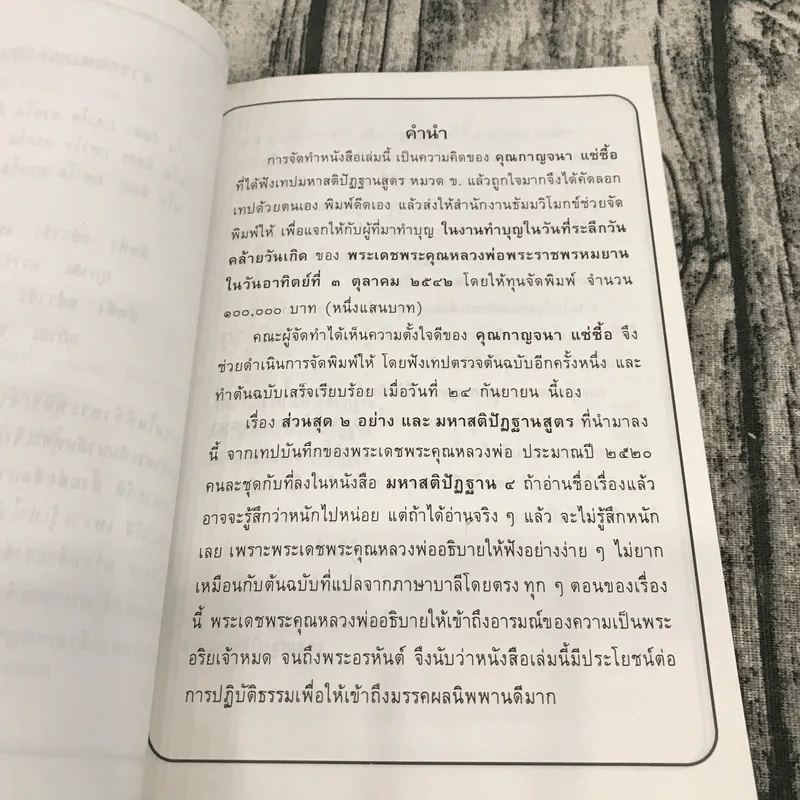 คำนำ
การจัดทำหนังสือเล่มนี้ เป็นความคิดของ คุณกาญจนา แซ่ซื้อ
ที่ได้ฟังเทปมหาสติปัฏฐานสูตร หมวด ข. แล้วถูกใจมากจึงได้คัดลอก
เทปด้วยตนเอง พิมพ์ดีดเอง แล้วส่งให้สำนักงานธัมมวิโมกข์ช่วยจัด
พิมพ์ให้ เพื่อแจกให้กับผู้ที่มาทำบุญ ในงานทำบุญในวันที่ระลึกวัน
คล้ายวันเกิด ของ พระเดชพระคุณหลวงพ่อพระราชพรหมยาน
ในวันอาทิตย์ที่ ๓ ตุลาคม ๒๕๔๒ โดยให้ทุนจัดพิมพ์ จำนวน
๑๐๐,๐๐๐ บาท (หนึ่งแสนบาท)
คณะผู้จัดทำได้เห็นความตั้งใจดีของ คุณกาญจนา แซ่ซื้อ จึง
ช่วยดำเนินการจัดพิมพ์ให้ โดยฟังเทปตรวจต้นฉบับอีกครั้งหนึ่ง และ
ทำต้นฉบับเสร็จเรียบร้อย เมื่อวันที่ ๒๔ กันยายน นี้เอง
เรื่อง ส่วนสุด ๒ อย่าง และ มหาสติปัฏฐานสูตร ที่นำมาลง
นี้ จากเทปบันทึกของพระเดชพระคุณหลวงพ่อ ประมาณปี ๒๕๒๐
คนละชุดกับที่ลงในหนังสือ มหาสติปัฏฐาน ๔ ถ้าอ่านชื่อเรื่องแล้ว
อาจจะรู้สึกว่าหนักไปหน่อย แต่ถ้าได้อ่านจริง ๆ แล้ว จะไม่รู้สึกหนัก
เลย เพราะพระเดชพระคุณหลวงพ่ออธิบายให้ฟังอย่างง่าย ๆ ไม่ยาก
เหมือนกับต้นฉบับที่แปลจากภาษาบาลีโดยตรง ทุก ๆ ตอนของเรื่อง
นี้ พระเดชพระคุณหลวงพ่ออธิบายให้เข้าถึงอารมณ์ของความเป็นพระ
อริยเจ้าหมด จนถึงพระอรหันต์ จึงนับว่าหนังสือเล่มนี้มีประโยชน์ต่อ
การปฏิบัติธรรมเพื่อให้เข้าถึงมรรคผลนิพพานดีมาก